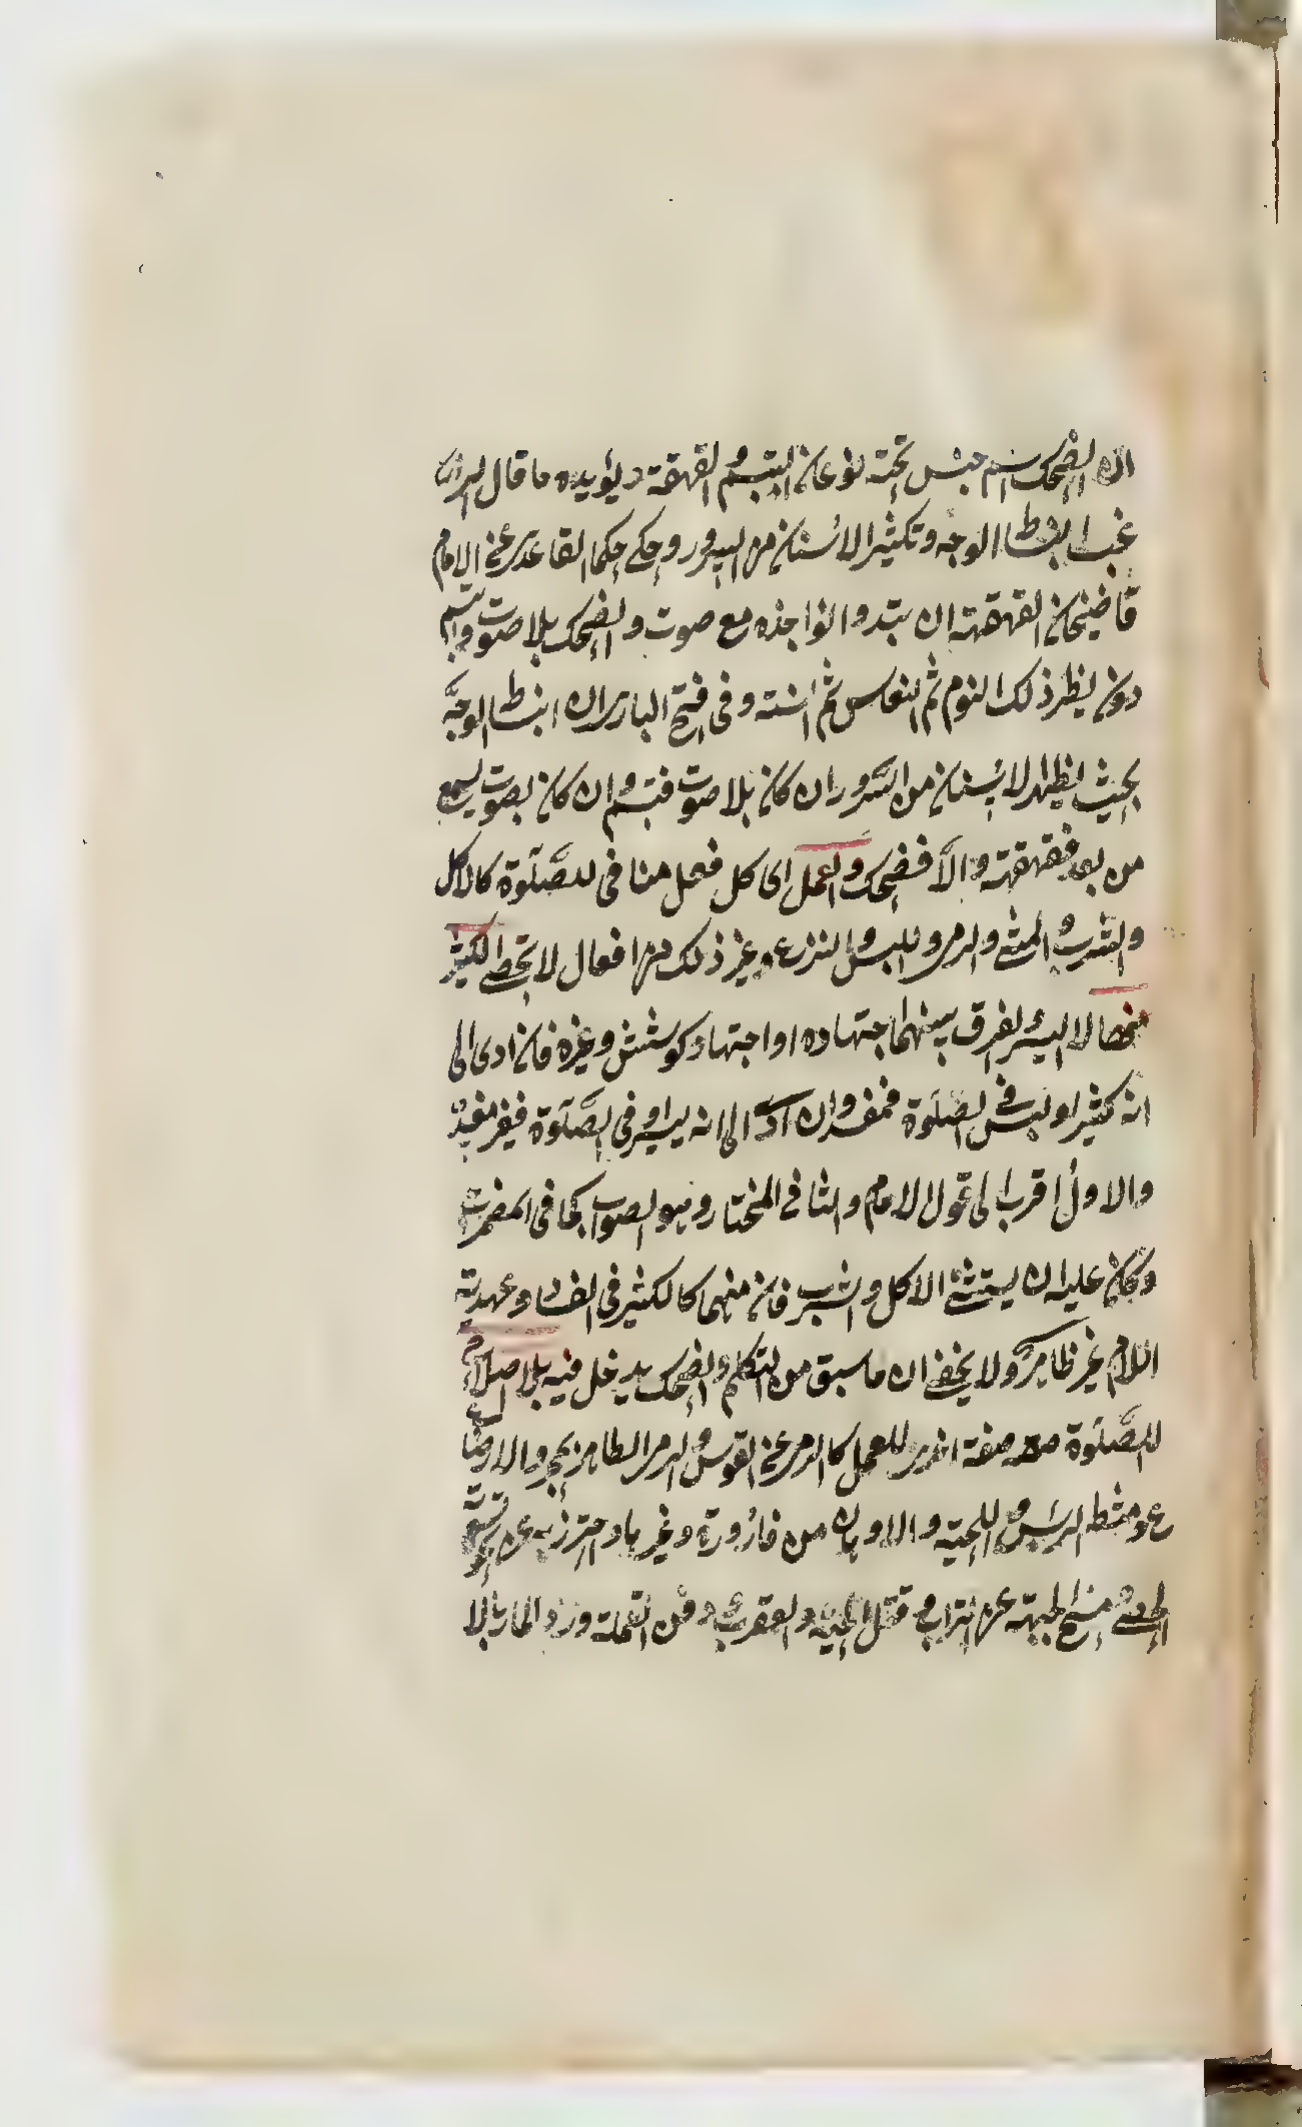 ان الضحك اسم جنس تحته نوعان التبسم والقهقهة ويؤيده ما قال الرا
غب انبساط الوجه وتكشير الاسنان من السرور وحكى حكما القاعدى عن الامام
قاضيخان القهقهة ان تبدو النواجذه مع صوت والضحك بلا صوت والتبسم
دونه نظير ذلك النوم ثم النعاس ثم السنة وفى فتح البارى ان انبساط الوجه
بحيث يظهر الاسنان من السرور ان كان بلا صوت فتبسم وان كان بصوت يسمع
من بعد فقهقهة والا فضحك والعمل اى كل فعل منافى للصلوة كالاكل
والشرب والمشى والرمى واللبس والنزع وغير ذلك من افعال لا تحصى الكثير
لا اليسير الفرق بينهما اجتهاده او اجتهاد كوشش وغيره فان ادى الى
انه كثير او ليس فى الصلوة فمفسد وان ادى الى انه يسير او فى الصلوة فغير مفسد
والاول اقرب الى قول الامام والثانى المختار وهو الصواب كما فى المضمرات
وكان عليه ان يستثنى الاكل والشرب فان منهما كالكثير فى الفساد وعهدية
اللام غير ظاهرة ولا يخفى ان ما سبق من التكلم والضحك يدخل فيه بلا اصلاح
للصلوة صفة اخرى للعمل كالرمى عن القوس والرمى الطاير بحجر والارضاع
ومشط الراس واللحية والادهان من قارورة وغيرها واحترز به عن
مسح الجبهة عن التراب وقتل الحية والعقرب ودفن القملة ورد المار بالا